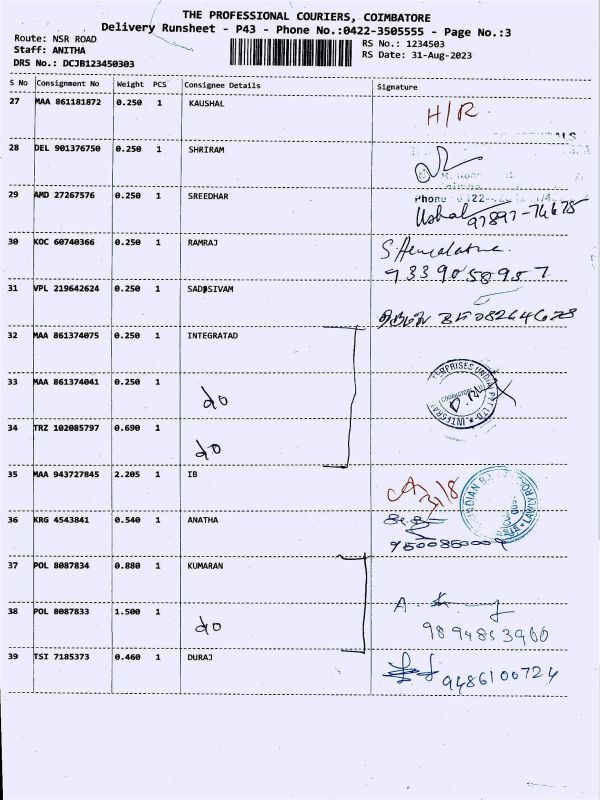 THE PROFESSIONAL COURIERS, COIMBATORE
Delivery Runsheet - P43 - Phone No.:0422-3505555 - Page No.:3
Route: NSR ROAD
RS No.: 1234503
Staff: ANITHA
RS Date: 31-Aug-2023
DRS No.: DCJB123450303
S No Consignment No Weight PCS Consignee Details Signature
27 MAA 861181872 0.250 1 KAUSHAL H/R
28 DEL 901376750 0.250 1 SHRIRAM
29 AMD 27267576 0.250 1 SREEDHAR
Phone
Ushal 97897-74675
30 KOC 60740366 0.250 1 RAMRAJ S.Hemalatha
9339058957
31 VPL 219642624 0.250 1 SADSIVAM
85082646
32 MAA 861374075 0.250 1 INTEGRATAD
33 MAA 861374041 0.250 1 do
34 TRZ 102085797 0.690 1 do
35 MAA 943727845 2.205 1 IB 31/8
INDIAN LAWLEY ROAD
36 KRG 4543841 0.540 1 ANATHA
37 POL 8087834 0.880 1 KUMARAN
38 POL 8087833 1.500 1 do
9894853960
39 TSI 7185373 0.460 1 DURAJ
9486100724